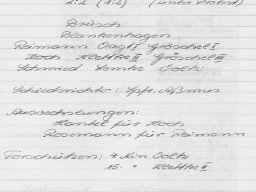 2:2 (1:2) (unter Protest)
Brüsch
Blankenhagen
Reimann Voigt Gröschel I
Koch Klettke II Gröschel III
Schmied Lemke Voltz
Schiedsrichter: Spfr. Aßmus
Auswechslungen:
Hankel für Koch
Rosemann für Reimann
Torschützen: 4. Min Voltz
15. " Klettke II